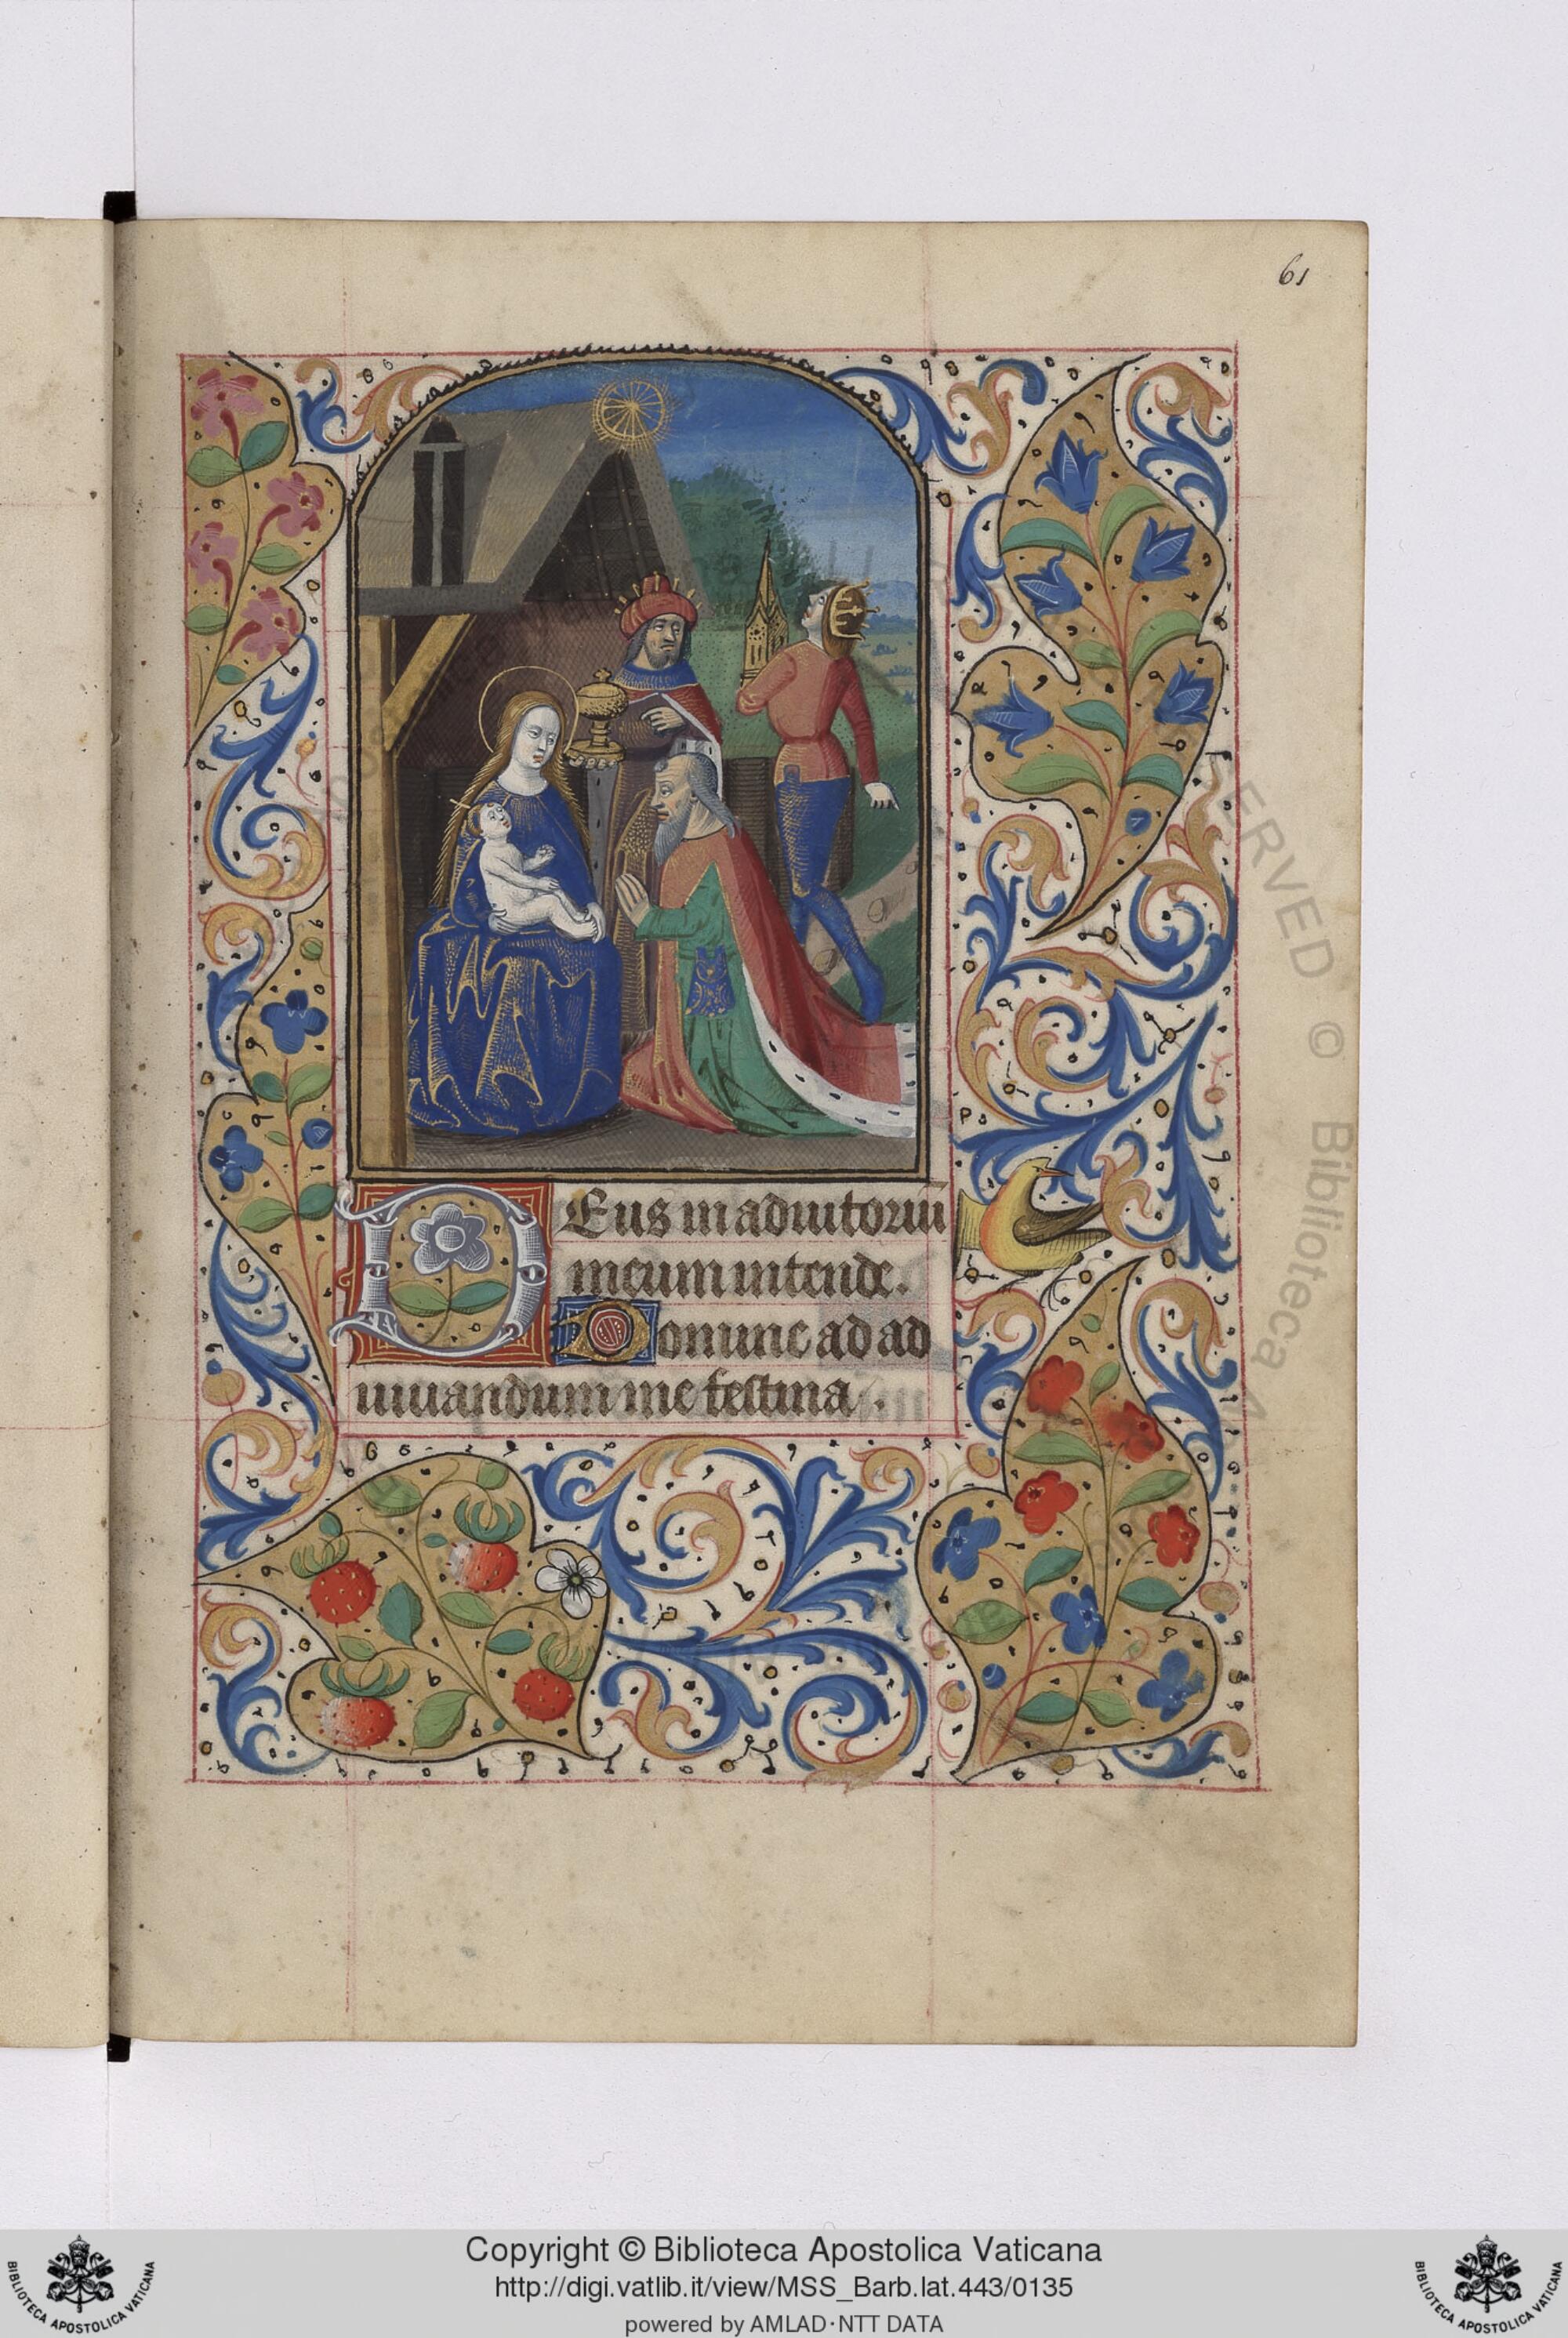 61
Deus in adiutoriū
meum intende.
Domine ad ad
iuuandum me festina.
RESERVED © Biblioteca A
Copyright © Biblioteca Apostolica Vaticana
http://digi.vatlib.it/view/MSS_Barb.lat.443/0135
powered by AMLAD·NTT DATA
BIBLIOTECA APOSTOLICA VATICANA
BIBLIOTECA APOSTOLICA VATICANA